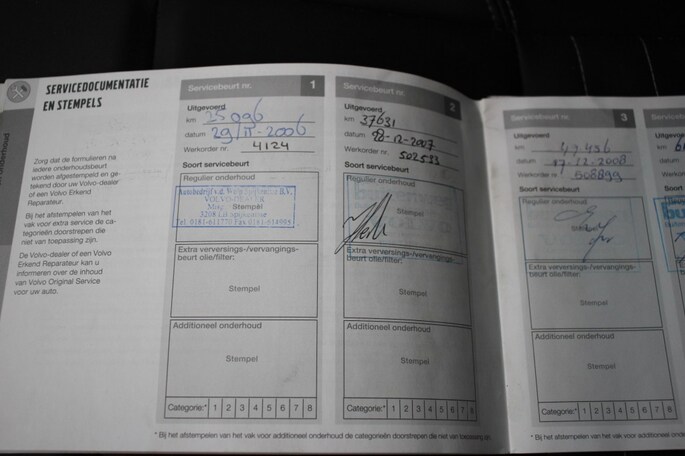 SERVICEDOCUMENTATIE
EN STEMPELS
Zorg dat de formulieren na
iedere onderhoudsbeurt
worden afgestempeld en ge-
tekend door uw Volvo-dealer
of een Volvo Erkend
Reparateur.
Bij het afstempelen van het
vak voor extra service de ca-
tegorieën doorstrepen die
niet van toepassing zijn.
De Volvo-dealer of een Volvo
Erkend Reparateur kan u
informeren over de inhoud
van Volvo Original Service
voor uw auto.
Servicebeurt nr. 1
Uitgevoerd
km 25096
datum 29/11-2006
Werkorder nr. 4124
Soort servicebeurt
Regulier onderhoud
VOLVO-DEALER
Stempel
Extra verversings-/vervangings-
beurt olie/filter:
Stempel
Additioneel onderhoud
Stempel
Categorie:* 1 2 3 4 5 6 7 8
Servicebeurt nr. 2
Uitgevoerd
km 37631
datum 18-12-2007
Werkorder nr. 502533
Soort servicebeurt
Regulier onderhoud
Stempel
Extra verversings-/vervangings-
beurt olie/filter:
Stempel
Additioneel onderhoud
Stempel
Categorie:* 1 2 3 4 5 6 7 8
* Bij het afstempelen van het vak voor additioneel onderhoud de categorieën doorstrepen die niet van toepassing zijn.
Servicebeurt nr. 3
Uitgevoerd
km 49456
datum 17-12-2008
Werkorder nr. 508899
Soort servicebeurt
Regulier onderhoud
Extra verversings-/vervangings-
beurt olie/filter:
Stempel
Additioneel onderhoud
Stempel
Categorie:* 1 2 3 4 5 6 7 8
* Bij het afstempelen van het vak voor additioneel onderhoud de